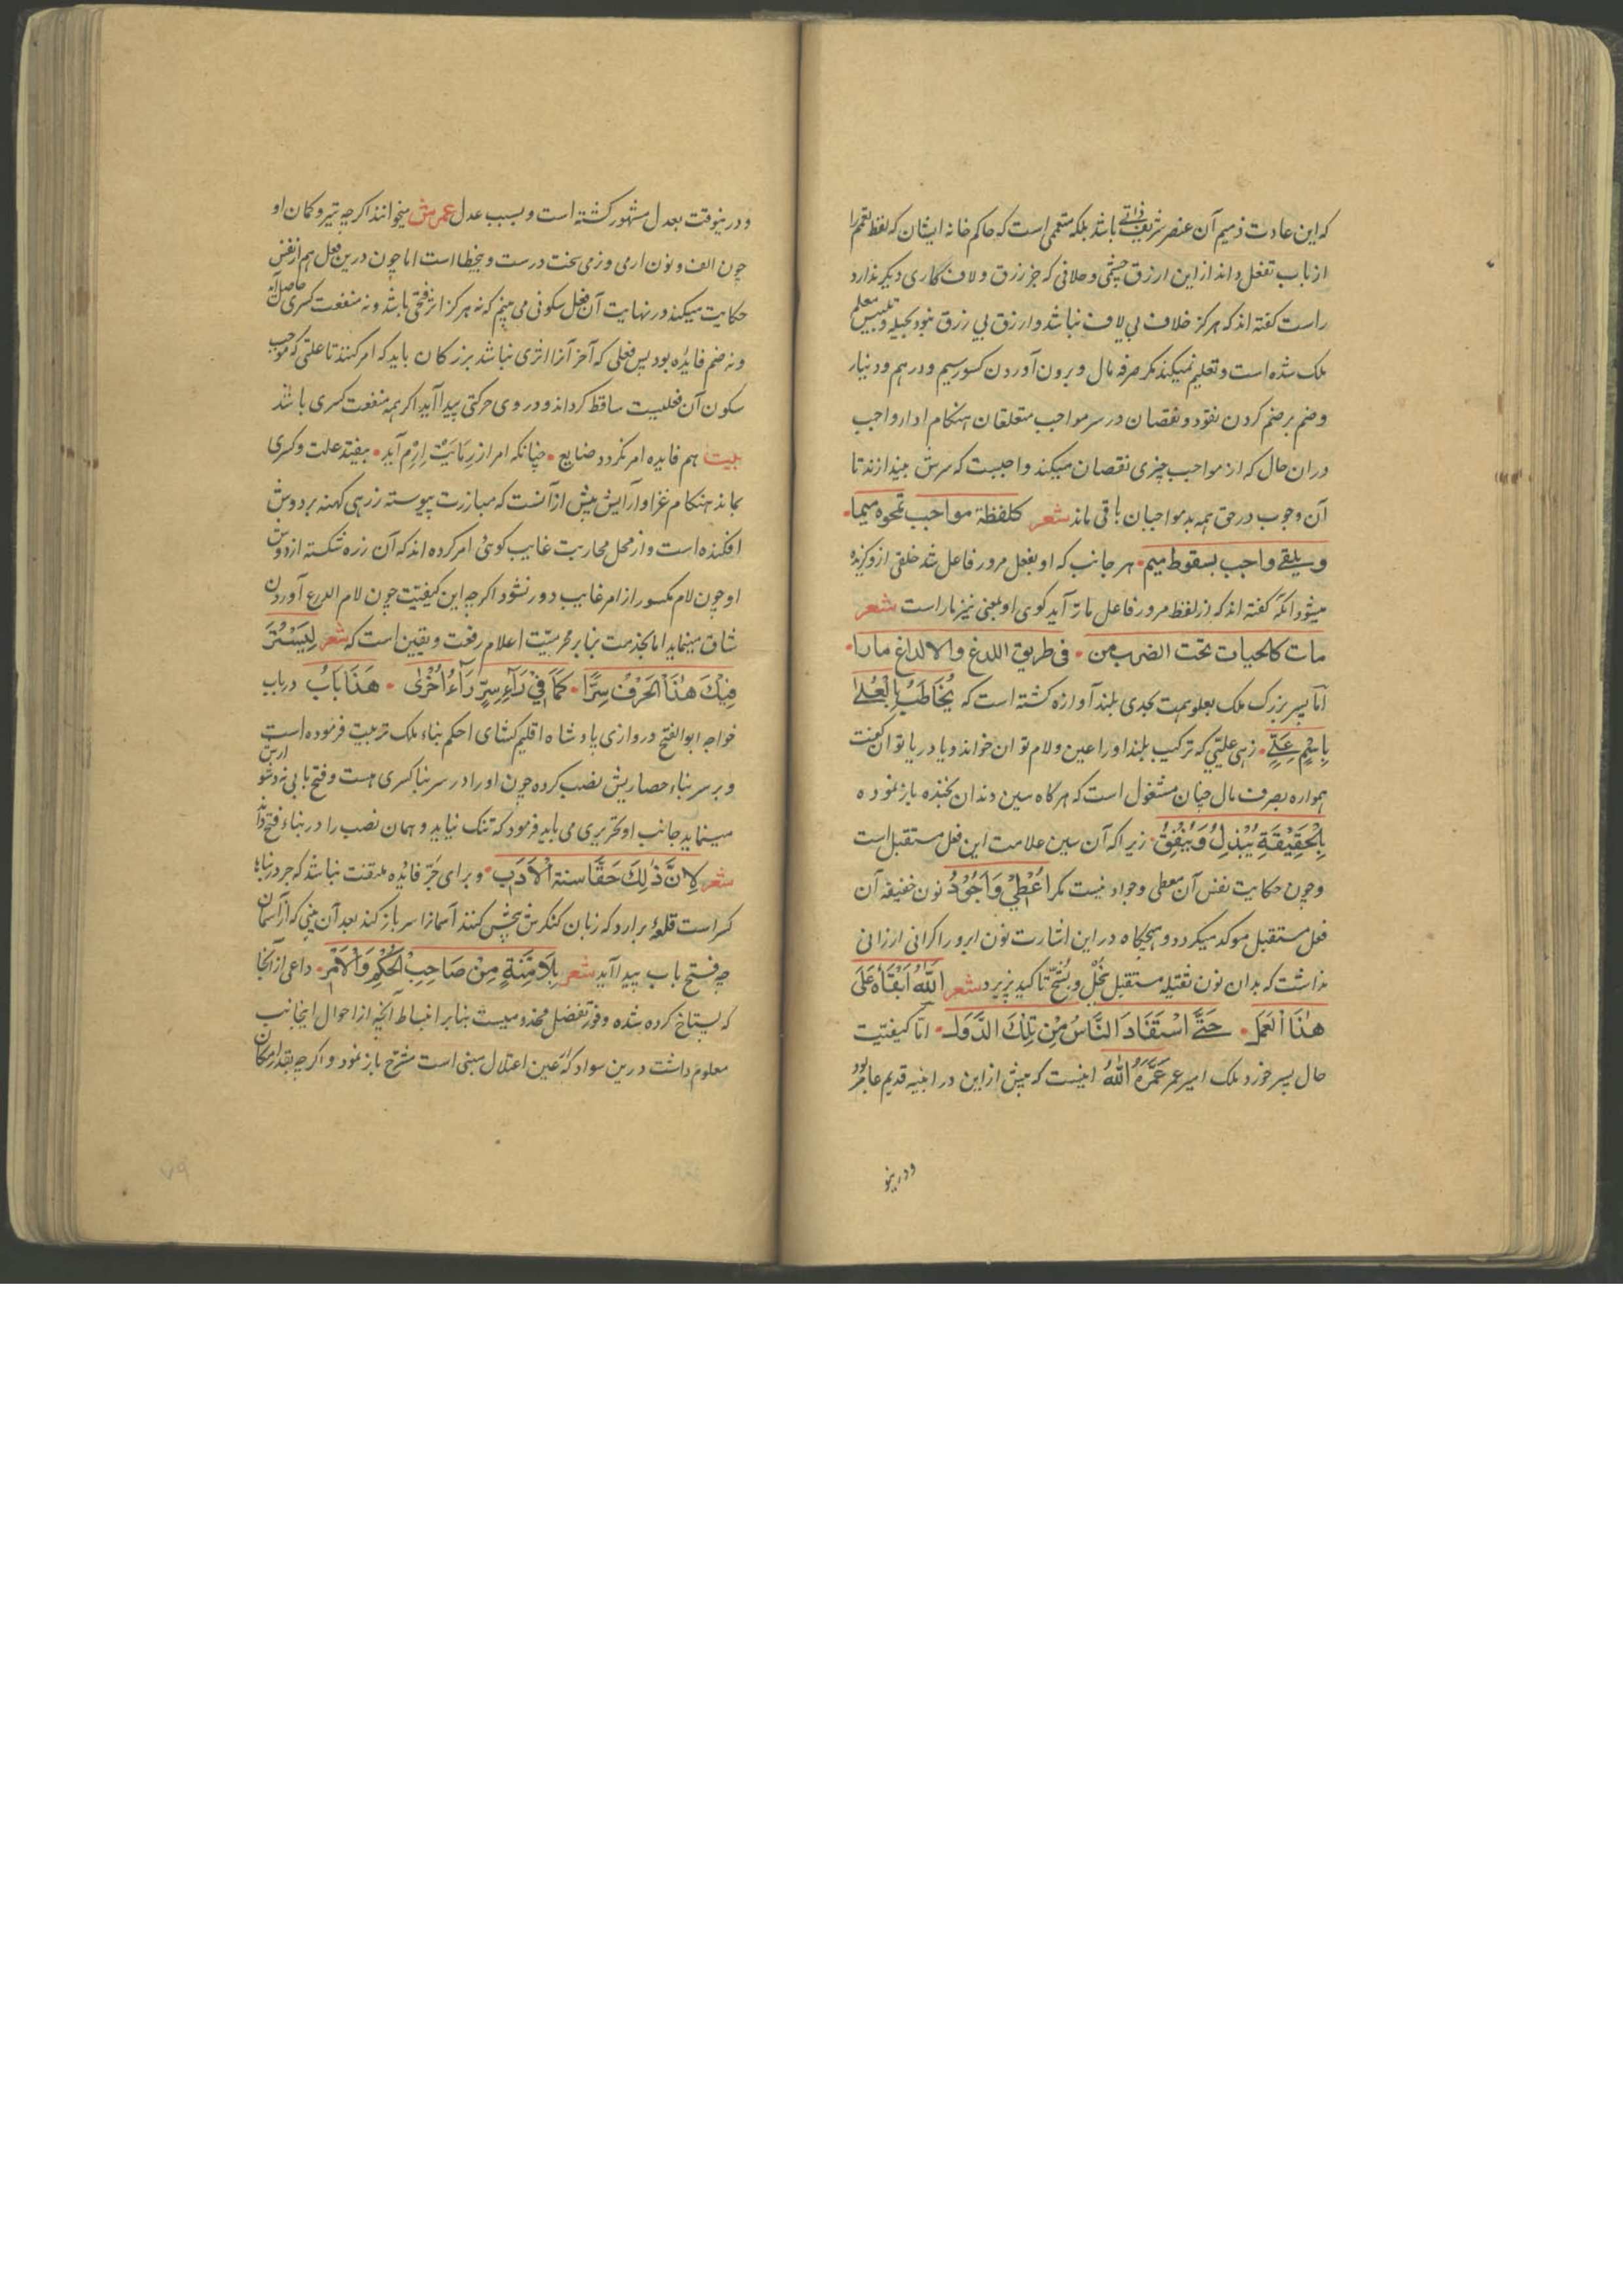 که این عادت ذمیم آن عنصر شریف ذاتی باشد بلکه متعمی است که حاکم خانه ایشان که لفظ تعمم را
از باب تفعل داند از این ازرق چشمی و حلافی که جز زرق و لاف کاری دیکر ندارد
راست کفته اند که هرکز خلاف بی لاف نباشد و ازرق بی زرق نبود بحیله و تلبیس معلم
ملک شده است و تعلیم نمیکند مکر صرفه مال و برون آوردن کسور سیم و درهم و دینار
و ضم بر ضم کردن نقود و نقصان در سر مواجب متعلقان هنکام ادار واجب
دران حال که از مواجب چیزی نقصان میکند واجبست که سرش بیندازند تا
آن وجوب در حق همه بد مواجبان باقی ماند شعر کلفظة مواجب تمحوه میما
و یلقی واجب بسقوط میم هر جانب که او بفعل مرور فاعل شد خلقی ازو کزیده
میشود آنکه کفته اند که از لفظ مرور فاعل مارّ آید کوی او بمعنی نیز مار است شعر
مات کالحیات تحت الضرب من فی طریق اللدغ والالداغ مارا
اما پسر بزرک ملک بعلو همت بحدی بلند آوازه کشته است که یُخَاطَبُ بِالْعُلَی
بِاسْمِ عَلِیٍّ زهی علیّی که ترکیب بلند اورا عین و لام توان خواند و یا دریا توان کفت
همواره بصرف مال چنان مشغول است که هرکاه سین دندان بخنده باز نموده
بِالْحَقِیْقَةِ یُبْذِلُ وَیُنْفِقُ زیرا که آن سین علامت این فعل مستقبل است
و چون حکایت نفس آن معطی و جواد نیست مکر اُعْطِیْ وَاَجُوْدُ نون خفیفه آن
فعل مستقبل موکد میکردد و هیچکاه در این اشارت نون ابرو را کرانی ارزانی
نداشت که بدان نون ثقیله مستقبل بُخْل و شُحّ تاکید پذیرد شعر اَللّٰهُ اَبْقَاهُ عَلَی
هٰذَا الْعَمَل حَتّٰی اسْتَفَادَ النَّاسُ مِنْ تِلْکَ الدَّوَل امّا کیفیت
حال پسر خورد ملک امیر عمر عَمَّرَهُ اللّٰهُ اینست که پیش از این در ابنیه قدیم عامر بود
ودرینو
ودرینوقت بعدل مشهور کشته است و بسبب عدل عمرش میخوانند اکرچه تیر و کمان او
چون الف و نون ارمی و زمی سخت درست و بیخطا است اما چون درین فعل هم از نفس
حکایت میکند در نهایت آن فعل سکونی می بینم که نه هرکز اثر فتحی باشد و نه منفعت کسری حاصل آید
و نه ضم فایده بود پس فعلی که آخر آنرا اثری نباشد بزرکان باید که امر کنند تا علتی که موجب
سکون آن فعلیست ساقط کرداند و در وی حرکتی پیدا آید اکر همه منفعت کسری باشد
بیت هم فایده امر نکردد ضایع چنانکه امر از رِمَایَتْ اِرْمِ آید بیفتد علت و کسری
بماند هنکام غزا و آرایش پیش از آنست که مبارزت پیوسته زرهی کهنه بر دوش
افکنده است و از محل محاربت غایب کوئی امر کرده اند که آن زره شکسته از دوش
او چون لام مکسور از امر غایب دور نشود اکرچه این کیفیت چون لام الدرع آوردن
شاق مینماید اما بخدمت بنا بر محرمیّت اعلام رفعت و یقین است که شعر لِیَسْتُرَ
فِیْکَ هٰذَا الْحَرْفُ سِرًّا کَمَا فِیْ رَآءِ سِرٍّ رَآءُ اُخْرٰی هَذَا بَابُ درباب
خواجه ابو الفتح دروازی پادشاه اقلیم کشای احکم بناء ملک تربیت فرموده است
و بر سر بناء حصاریش نصب کرده چون اورا در سر بنا کسری هست و فتح بابی نه
مینماید جانب او تحریری می باید فرمود که تنک نیاید و همان نصب را در بناء فتح داند
شعر لِاَنَّ ذٰلِکَ حَقَّا سنة الْاَدَبِ و برای جرّ فایده ملتفت نباشد که جر در بناها
کسراست قلعه برآرد که زبان کنکرش بخش کنند آسمانرا سر باز کند بعد آن بینی که از آسمان
چه فتح باب پیدا آید شعر بِلَا مِنَّةٍ مِنْ صَاحِبِ الْحُکْمِ وَالْاَمْرِ داعی از آنجا
که بستاخ کرده شده وفور تفضل مخدومیست بنا بر انبساط آنچه از احوال اینجانب
معلوم داشت درین سواد که عین اعتلال مبنی است مشرّح باز نمود و اکرچه بقدر امکان
۷۹